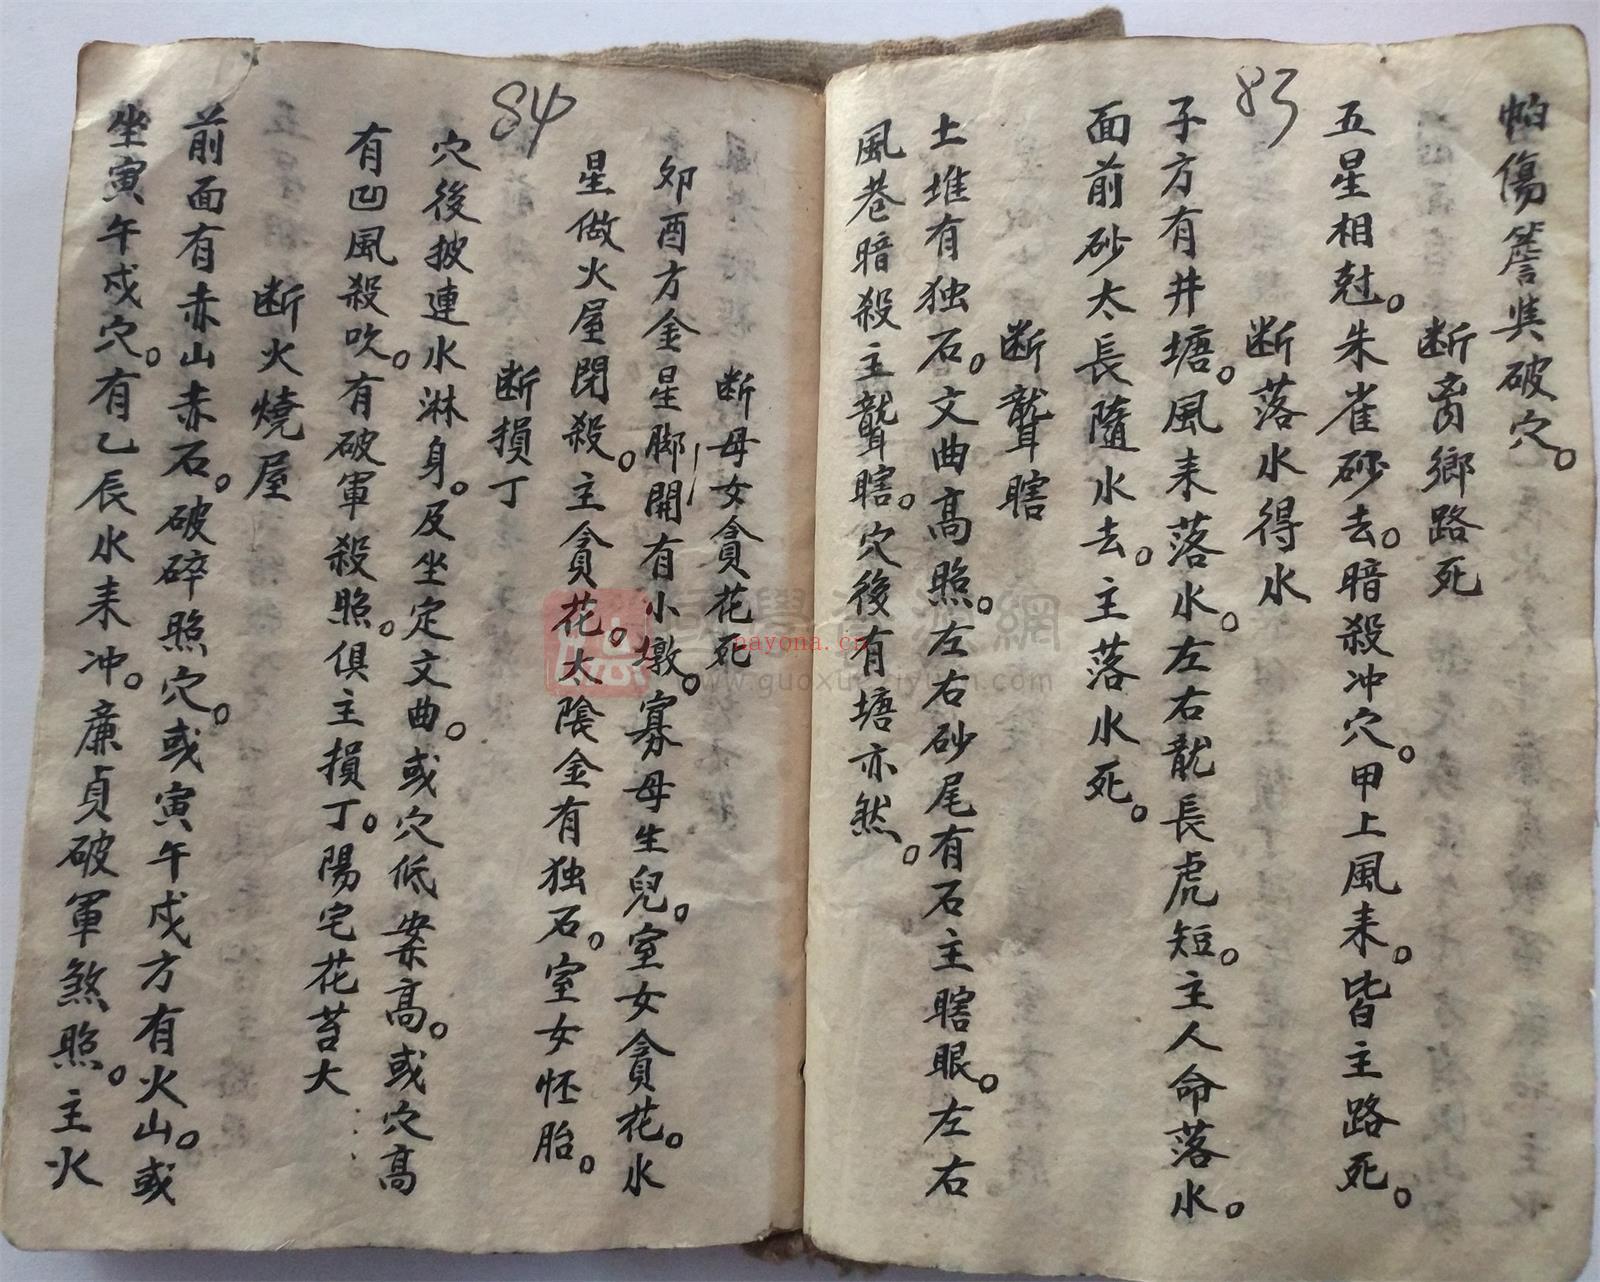 83
怕傷簷凿破穴。
断离鄉路死
五星相尅。朱雀砂去。暗殺冲穴。甲上風来。皆主路死。
断落水得水
子方有井塘。風来落水。左右龍長虎短。主人命落水。
面前砂太長隨水去。主落水死。
断聾瞎
土堆有独石。文曲高照。左右砂尾有石主瞎眼。左右
風巷暗殺主聾瞎。穴後有塘亦然。
84
断母女貪花死
夘酉方金星脚開有小墩。寡母生兒。室女貪花。水
星做火屋閉殺。主貪花。太陰金有独石。室女怀胎。
断損丁
穴後披連水淋身。及坐定文曲。或穴低案高。或穴高
有凹風殺吹。有破軍殺照。俱主損丁。陽宅花苔大
断火燒屋
前面有赤山赤石。破碎照穴。或寅午戍方有火山。或
坐寅午戍穴。有乙辰水来冲。廉貞破軍煞照。主火
國學資源網
nayona.cn
www.guoxueziyuan.com